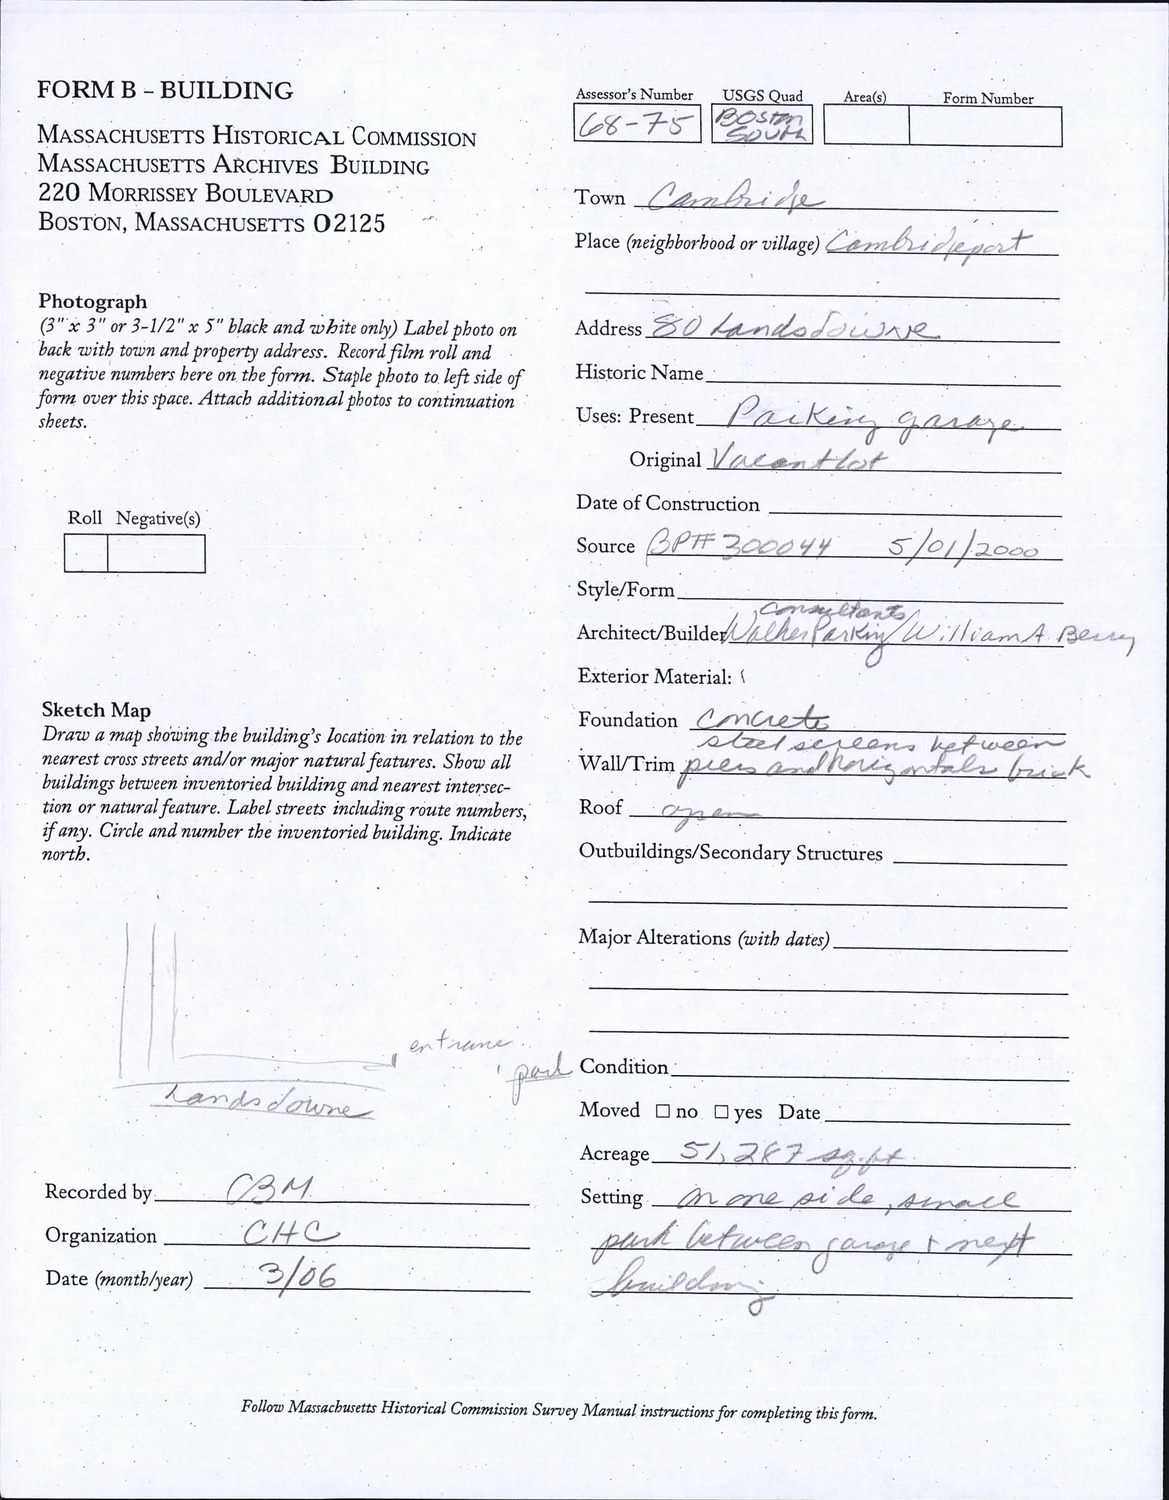 FORM B – BUILDING
MASSACHUSETTS HISTORICAL COMMISSION
MASSACHUSETTS ARCHIVES BUILDING
220 MORRISSEY BOULEVARD
BOSTON, MASSACHUSETTS 02125
Photograph
(3" x 3" or 3-1/2" x 5" black and white only) Label photo on
back with town and property address. Record film roll and
negative numbers here on the form. Staple photo to left side of
form over this space. Attach additional photos to continuation
sheets.
Roll Negative(s)
Sketch Map
Draw a map showing the building's location in relation to the
nearest cross streets and/or major natural features. Show all
buildings between inventoried building and nearest intersec-
tion or natural feature. Label streets including route numbers,
if any. Circle and number the inventoried building. Indicate
north.
entrance
park
Landsdowne
Recorded by CBM
Organization CHC
Date (month/year) 3/06
Assessor's Number USGS Quad Area(s) Form Number
68-75 Boston
South
Town Cambridge
Place (neighborhood or village) Cambridgeport
Address 80 Landsdowne
Historic Name
Uses: Present Parking garage
Original Vacant lot
Date of Construction
Source BP# 300044 5/01/2000
Style/Form
consultants
Architect/Builder Walker Parking/William A. Berry
Exterior Material:
Foundation concrete
steel screens between
Wall/Trim piers and horizontals brick
Roof open
Outbuildings/Secondary Structures
Major Alterations (with dates)
Condition
Moved □ no □ yes Date
Acreage 51,287 sq. ft.
Setting on one side, small
park between garage + next
building
Follow Massachusetts Historical Commission Survey Manual instructions for completing this form.